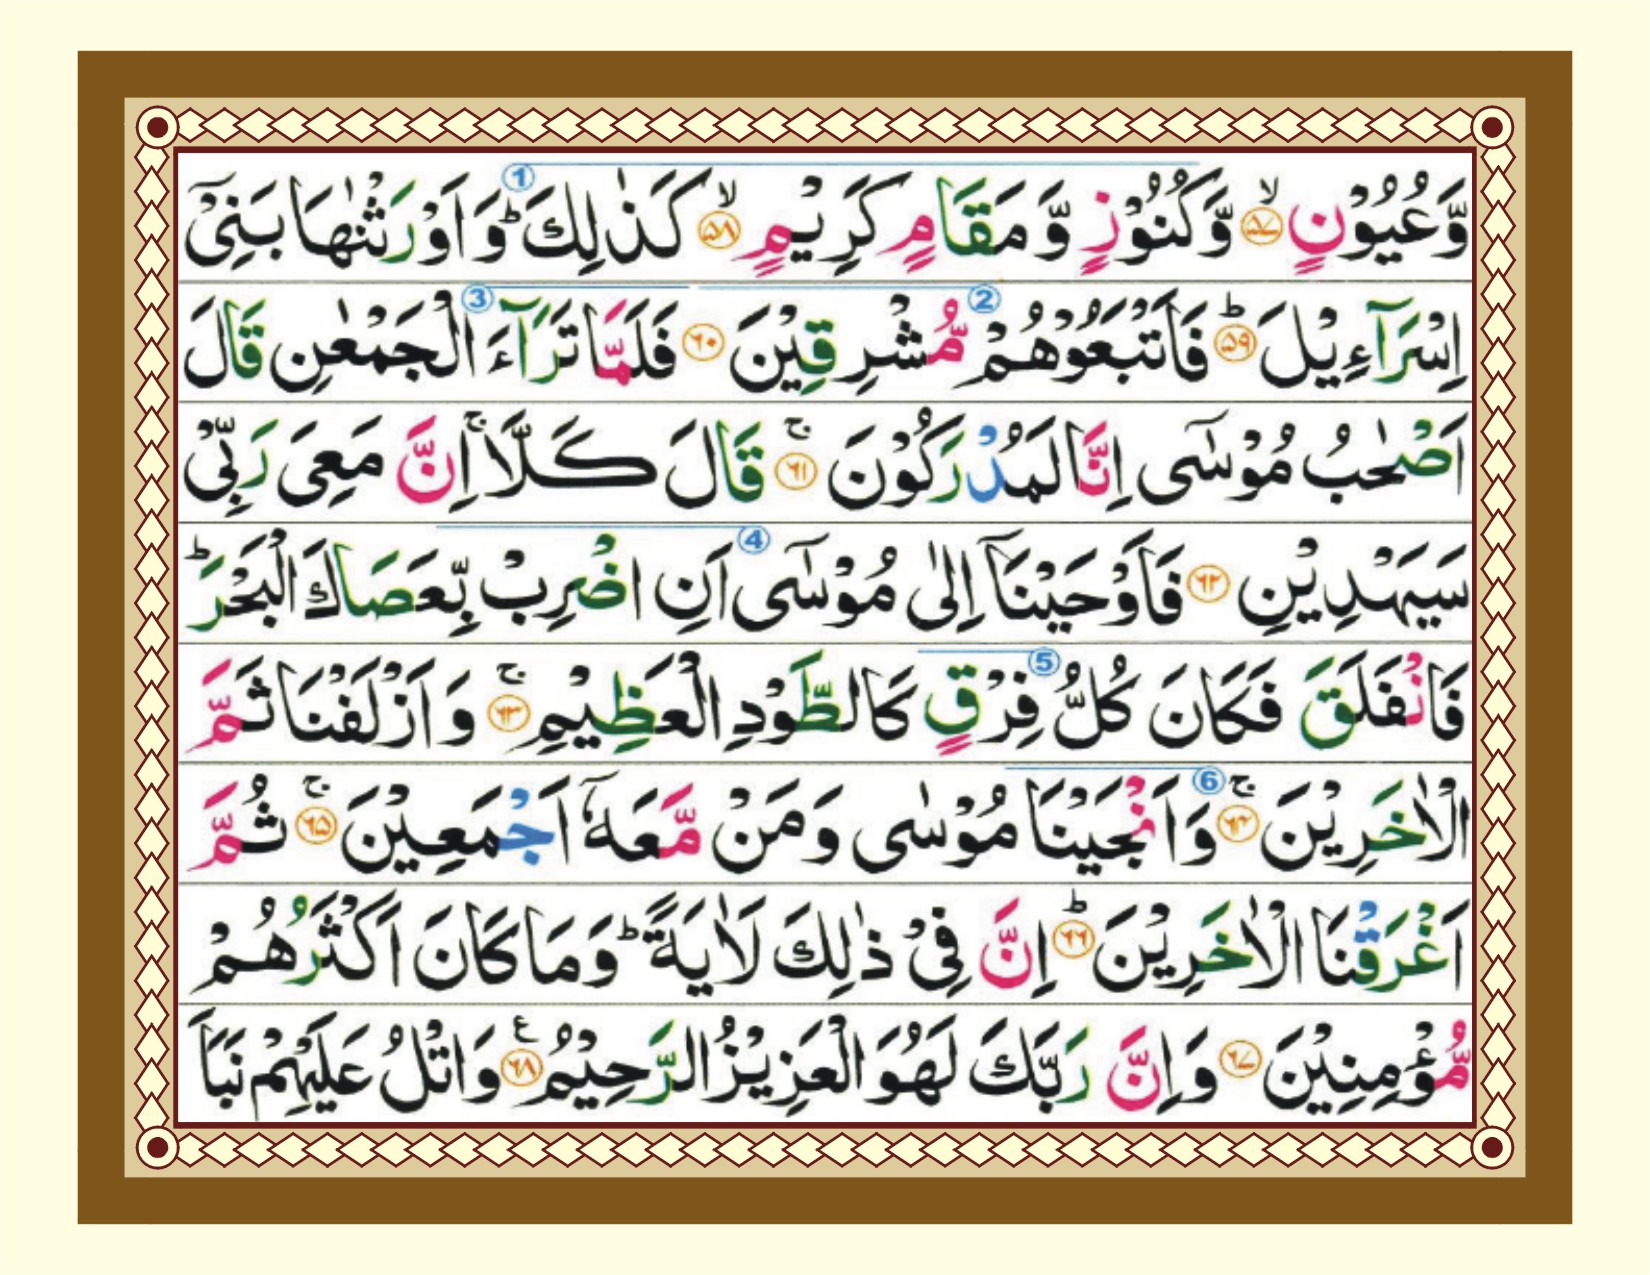 وَّعُيُوْنٍ ۙ‏﴿۵۷﴾ وَّكُنُوْزٍ وَّمَقَامٍ كَرِيْمٍ ۙ‏﴿۵۸﴾ ① كَذٰلِكَ ؕ وَاَوْرَثْنٰهَا بَنِىْۤ
اِسْرَآءِيْلَ ؕ‏﴿۵۹﴾ فَاَتْبَعُوْهُمْ ② مُّشْرِقِيْنَ ‏﴿۶۰﴾ فَلَمَّا تَرَآءَ ③ الْجَمْعٰنِ قَالَ
اَصْحٰبُ مُوْسٰٓى اِنَّا لَمُدْرَكُوْنَ ۚ‏﴿۶۱﴾ قَالَ كَلَّا ۚ اِنَّ مَعِىَ رَبِّىْ
سَيَهْدِيْنِ ‏﴿۶۲﴾ فَاَوْحَيْنَاۤ اِلٰى مُوْسٰٓى ④ اَنِ اضْرِبْ بِّعَصَاكَ الْبَحْرَ ؕ
فَانْفَلَقَ فَكَانَ كُلُّ ⑤ فِرْقٍ كَالطَّوْدِ الْعَظِيْمِ ۚ‏﴿۶۳﴾ وَاَزْلَفْنَا ثَمَّ
الْاٰخَرِيْنَ ۚ‏﴿۶۴﴾ ⑥ وَاَنْجَيْنَا مُوْسٰى وَمَنْ مَّعَهٗۤ اَجْمَعِيْنَ ۚ‏﴿۶۵﴾ ثُمَّ
اَغْرَقْنَا الْاٰخَرِيْنَ ؕ‏﴿۶۶﴾ اِنَّ فِىْ ذٰلِكَ لَاٰيَةً ؕ وَمَا كَانَ اَكْثَرُهُمْ
مُّؤْمِنِيْنَ ‏﴿۶۷﴾ وَاِنَّ رَبَّكَ لَهُوَ الْعَزِيْزُ الرَّحِيْمُ ‏﴿۶۸﴾ ع وَاتْلُ عَلَيْهِمْ نَبَاَ